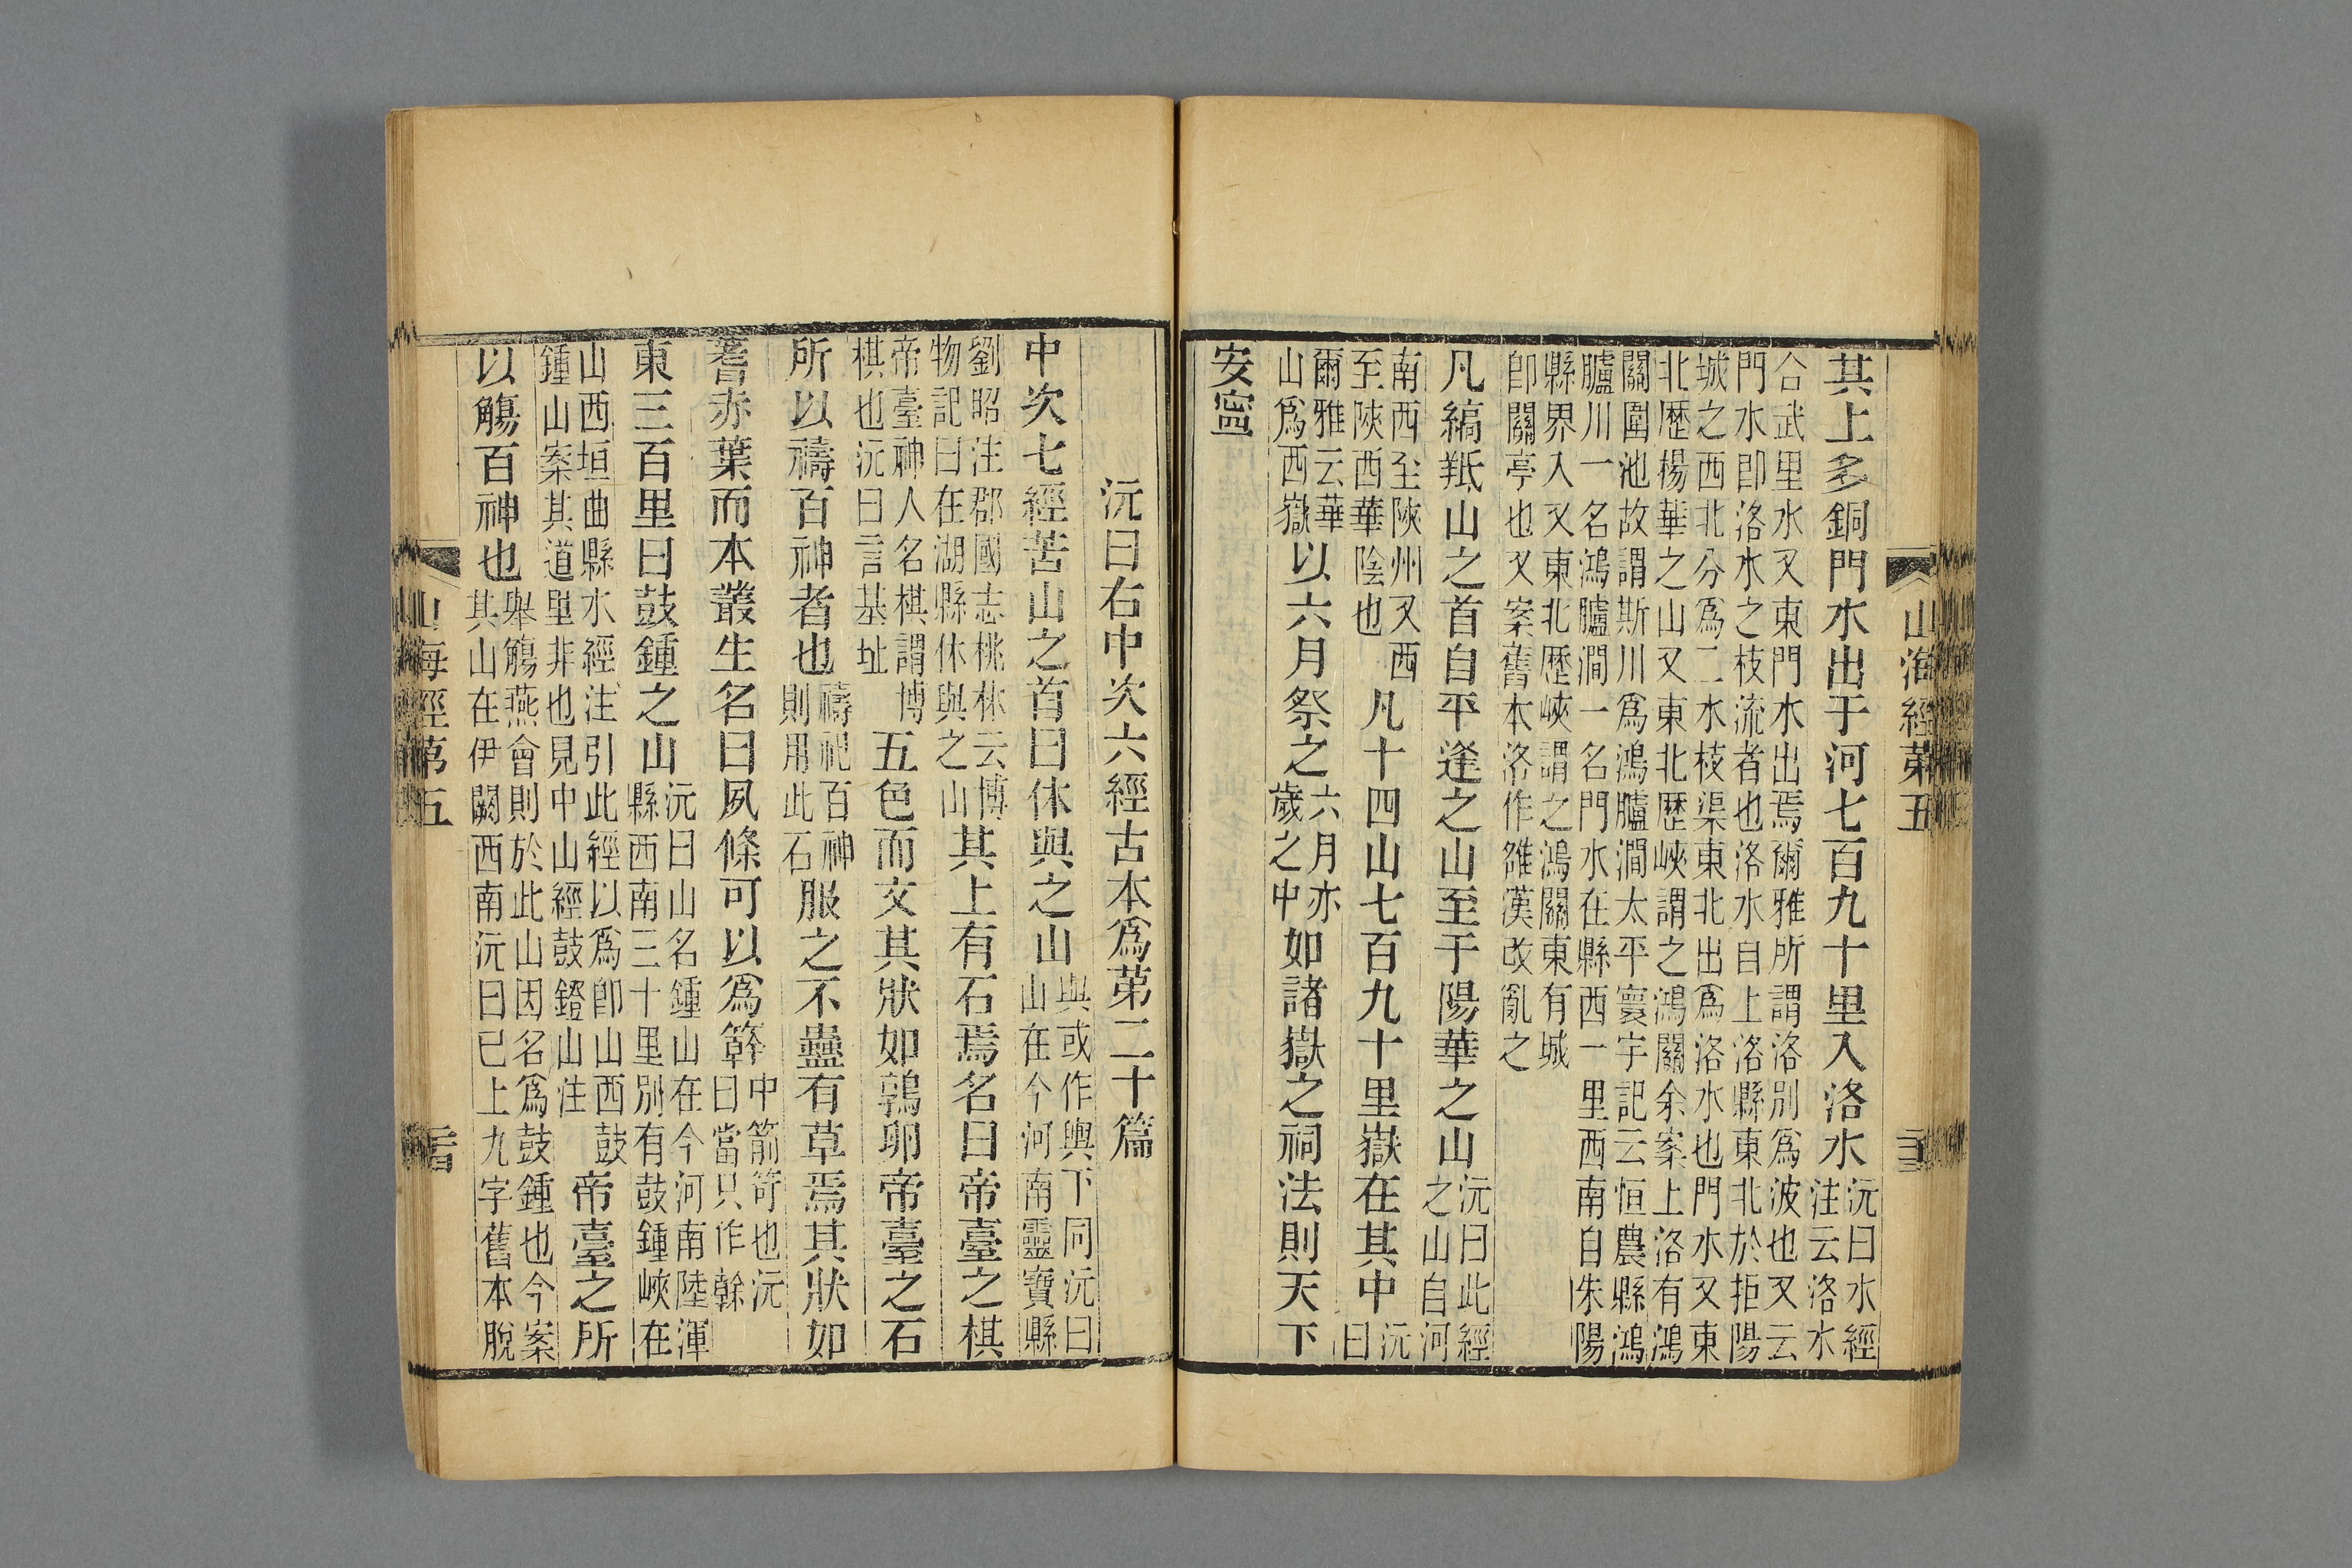 其上多銅門水出于河七百九十里入洛水沅曰水經注云洛水
合武里水又東門水出焉爾雅所謂洛別爲波也又云
門水即洛水之枝流者也洛水自上洛縣東北於拒陽
城之西北分爲二水枝渠東北出爲洛水也門水又東
北歷楊華之山又東北歷峽謂之鴻關余案上洛有鴻
關圍池故謂斯川爲鴻臚澗太平寰宇記云恒農縣鴻
臚川一名鴻臚澗一名門水在縣西一里西南自朱陽
縣界入又東北歷峽謂之鴻關東有城
即關亭也又案舊本洛作雒漢改亂之
凡縞羝山之首自平逢之山至于陽華之山沅曰此經之山自河
南西至陝州又西
至陝西華陰也凡十四山七百九十里嶽在其中沅曰
爾雅云華
山爲西嶽以六月祭之六月亦歲之中如諸嶽之祠法則天下
安寍
山海經第五
沅曰右中次六經古本爲第二十篇
中次七經苦山之首曰休與之山與或作輿下同沅曰山在今河南靈寶縣
劉昭注郡國志桃林云博
物記曰在湖縣休與之山其上有石焉名曰帝臺之棋
帝臺神人名棋謂博
棋也沅曰言基址五色而文其狀如鶉卵帝臺之石
所以禱百神者也禱祀百神則用此石服之不蠱有草焉其狀如
蓍赤葉而本叢生名曰夙條可以爲簳中箭笴也沅曰當只作榦
東三百里曰鼓鍾之山沅曰山名鍾山在今河南陸渾縣西南三十里別有鼓鍾峽在
山西垣曲縣水經注引此經以爲卽山西鼓
鍾山案其道里非也見中山經鼓鐙山注帝臺之所
以觴百神也舉觴燕會則於此山因名爲鼓鍾也今案其山在伊闕西南沅曰已上九字舊本脫
山海經第五